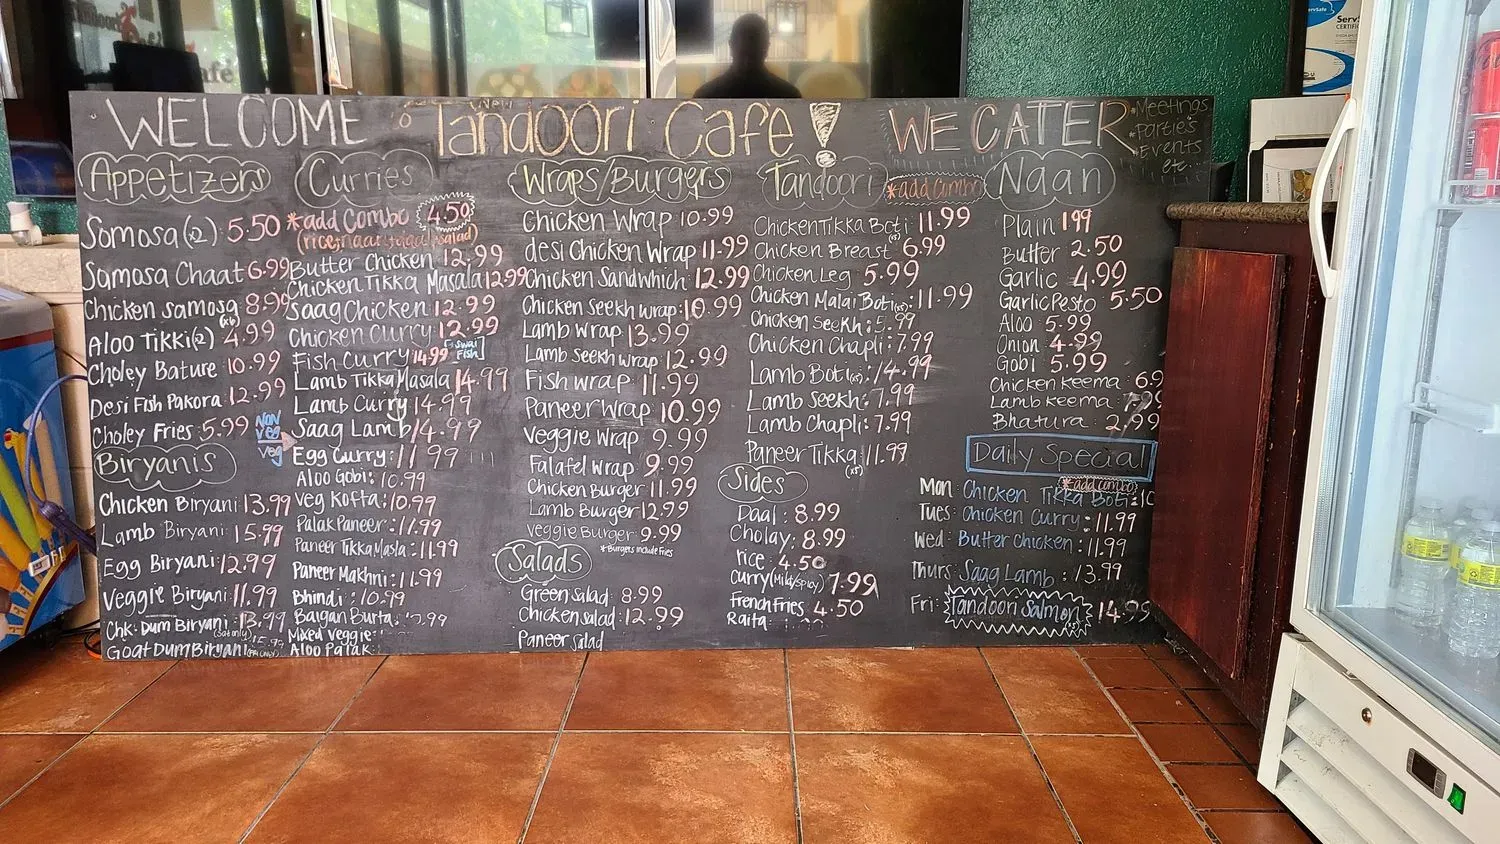 WELCOME to Tandoori Cafe!
WE CATER
*Meetings
*Parties
*Events
etc
Appetizers
Somosa (x2) 5.50
Samosa Chaat 6.99
Chicken Samosa 8.99
(x6)
Aloo Tikki (2) 4.99
Choley Bature 10.99
Desi Fish Pakora 12.99
Choley Fries 5.99
Biryanis
Chicken Biryani 13.99
Lamb Biryani 15.99
Egg Biryani: 12.99
Veggie Biryani 11.99
Chk. Dum Biryani 13.99
(Sat only)
Goat Dum Biryani
Curries
*add Combo 4.50
Butter Chicken 12.99
Chicken Tikka Masala 12.99
Saag Chicken 12.99
Chicken Curry 12.99
Fish Curry 14.99 Swai Fish
Lamb Tikka Masala 14.99
Lamb Curry 14.99
NON VEG
Saag Lamb 14.99
VEG
Egg Curry: 11.99
Aloo Gobi: 10.99
Veg Kofta: 10.99
Palak Paneer: 11.99
Paneer Tikka Masla: 11.99
Paneer Makhni: 11.99
Bhindi: 10.99
Baigan Burta:
Mixed Veggie:
Aloo Palak:
Wraps/Burgers
Chicken Wrap 10.99
desi Chicken Wrap 11.99
Chicken Sandwhich: 12.99
Chicken Seekh Wrap: 10.99
Lamb Wrap 13.99
Lamb Seekh Wrap 12.99
Fish Wrap 11.99
Paneer Wrap 10.99
Veggie Wrap 9.99
Falafel Wrap 9.99
Chicken Burger 11.99
Lamb Burger 12.99
Veggie Burger 9.99
*Burgers include Fries
Salads
Green Salad 8.99
Chicken Salad 12.99
Paneer Salad
Tandoori *add Combo
Chicken Tikka Boti 11.99
Chicken Breast 6.99
Chicken Leg 5.99
Chicken Malai Boti (x5): 11.99
Chicken Seekh: 5.99
Chicken Chapli: 7.99
Lamb Boti (x5): 14.99
Lamb Seekh: 7.99
Lamb Chapli: 7.99
Paneer Tikka: 11.99
(x5)
Sides
Daal: 8.99
Cholay: 8.99
rice: 4.50
Curry (Mild/Spicy) 7.99
French Fries 4.50
Raita:
Naan
Plain 1.99
Butter 2.50
Garlic 4.99
Garlic Pesto 5.50
Aloo 5.99
Onion 4.99
Gobi 5.99
Chicken Keema: 6.9
Lamb Keema: 7.99
Bhatura: 2.99
Daily Special
*add combo
Mon: Chicken Tikka Boti: 10
Tues: Chicken Curry: 11.99
Wed: Butter Chicken: 11.99
Thurs: Saag Lamb: 13.99
Fri: Tandoori Salmon 14.99